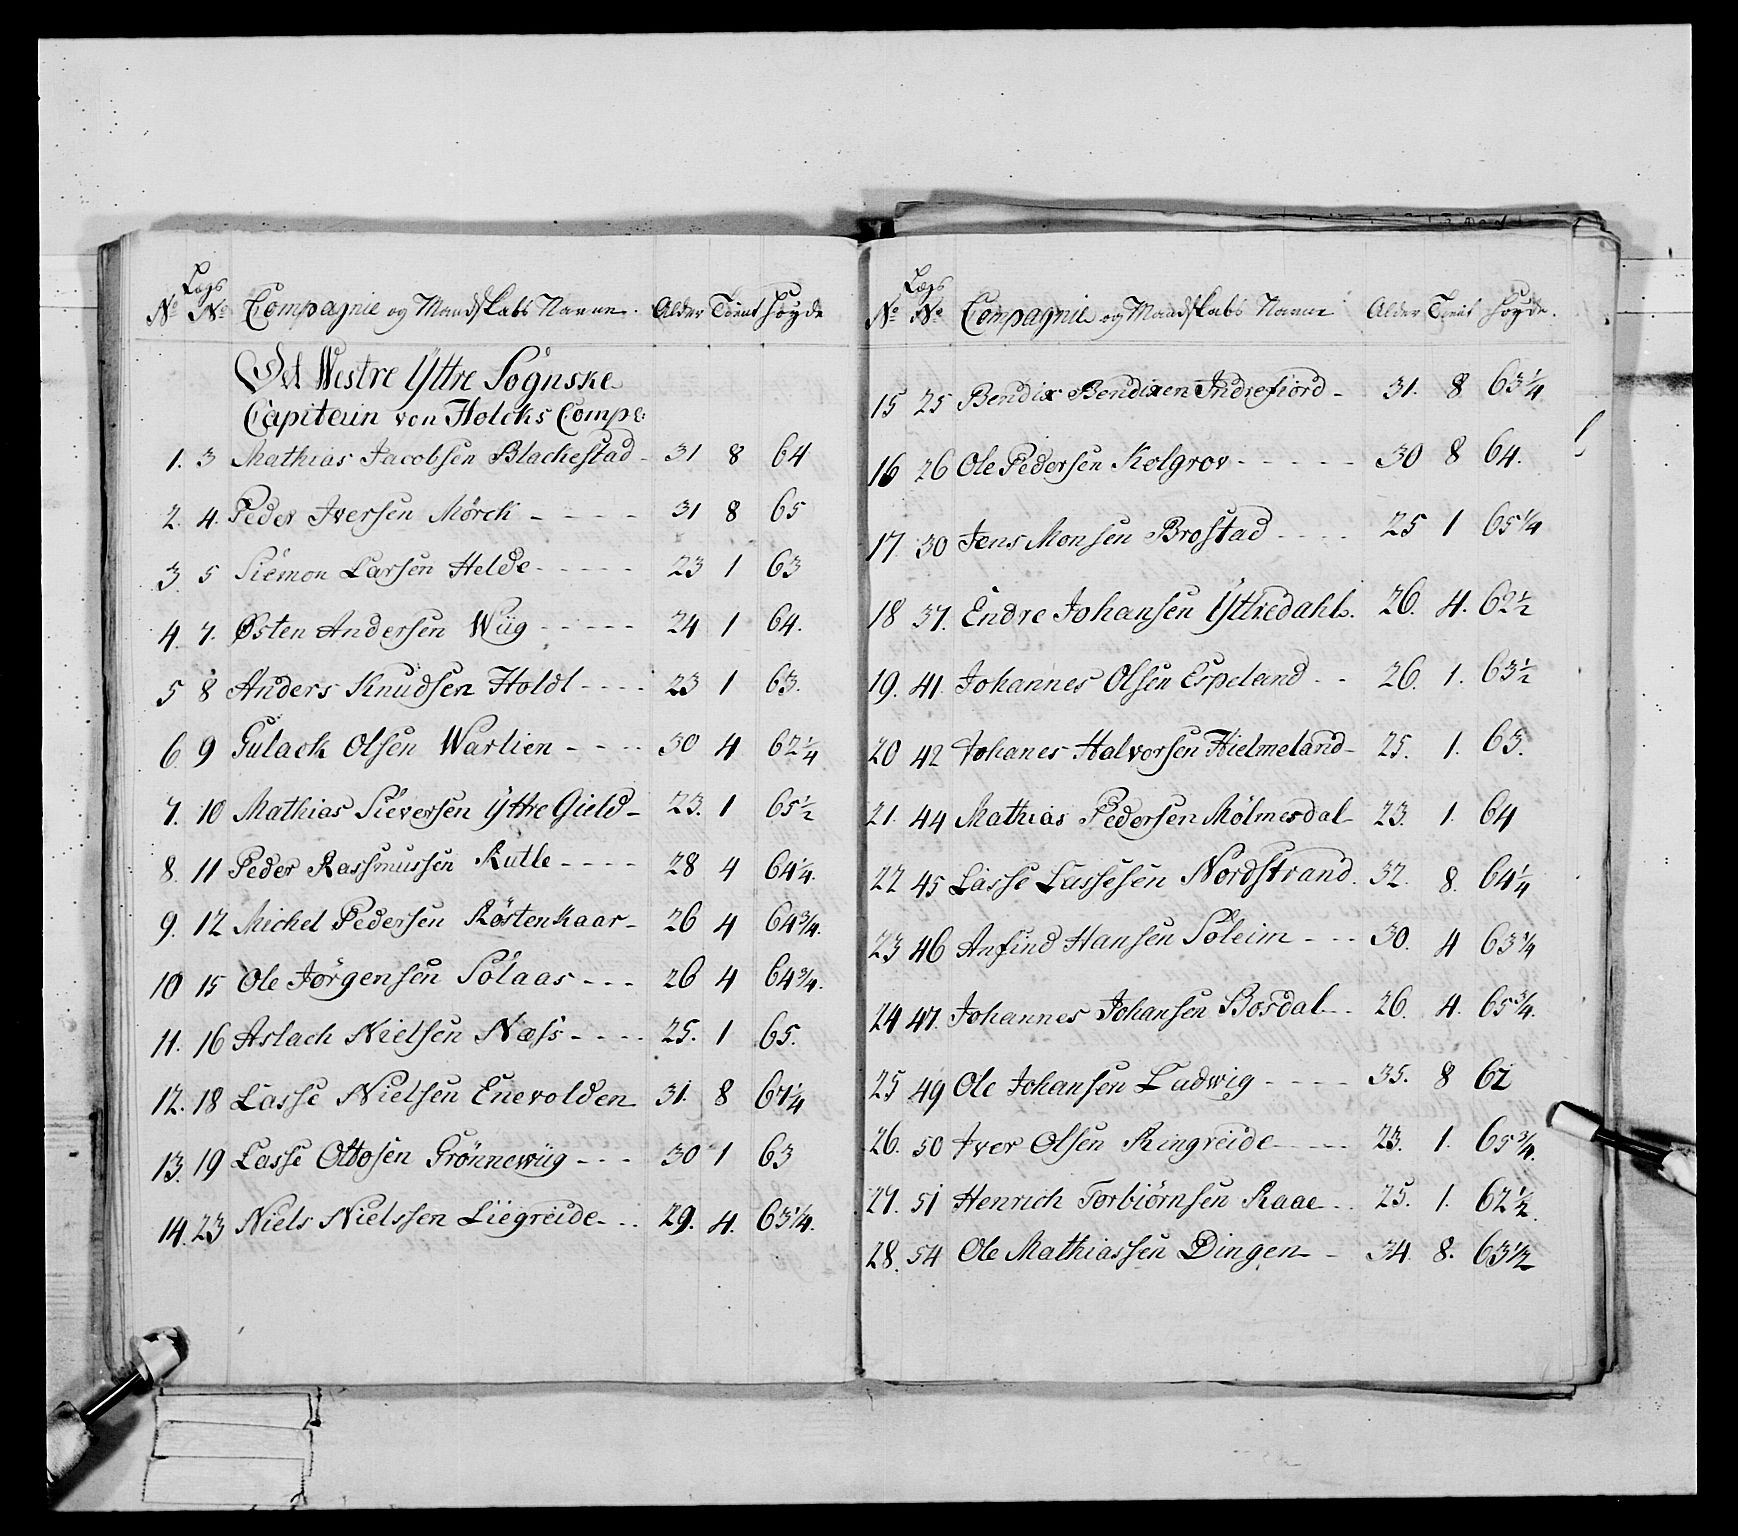 Lægs
No No Compagnie og Mandskabs Navne. Alder Tient Høyde
Det Westre Yttre Sognske
Capitein von Holcks Comp:
1. 3 Mathias Jacobsen Blackestad - 31 8 64
2. 4. Peder Iversen Mörch - - - - 31 8 65
3. 5 Siemon Larsen Helde - - - - - 23 1 63
4 7. Østen Andersen Wiig - - - - - 24 1 64.
5 8 Anders Knudsen Holdt - - - - 23 1 63.
6. 9 Gulack Olsen Warlien - - - - 30 4 62 1/4
7. 10 Mathias Sieversen Yttre Gield - 23. 1 65 1/2
8. 11 Peder Rassmussen Rutle - - - - 28 4 64 1/4.
9. 12 Michel Pedersen Röstenkaar - 26 4 64 3/4.
10 15 Ole Jörgensen Solaas - - - 26 4 64 3/4.
11. 16 Aslach Nielsen Næss - - - - 25. 1 65.
12. 18 Lasse Nielsen Enevolden 31. 8 67 1/4
13. 19 Lasse Ottosen Grönnewiig - - - 30 1 63
14. 23 Niels Nielssen Liegreide - - - 29. 4. 63 1/4.
Lægs
No No Compagnie og Mandskabs Navne Alder Tient Høyde.
15 25 Bendix Bendixen Indrefiord - 31. 8 63 1/4
16 26 Ole Pedersen Kolgrov - - - - - 30 8 64.
17. 30 Jens Monsen Brostad - - - - 25 1 65 1/4
18 37. Endre Johansen Yttredahl. 26. 4. 62 1/2
19. 41. Johannes Olsen Espeland - - 26. 1. 63 1/2
20 42 Johanes Halvorsen Hielmeland - 25. 1. 63.
21. 44 Mathias Pedersen Mölmesdal - 23. 1. 64
22 45 Lasse Lassesen Nordstrand. 32. 8. 64 1/4
23 46 Anfind Hansen Söleim - - - 30. 4 63 3/4
24 47. Johannes Johansen Bosdal - - 26. 4. 65 3/4.
25 49 Ole Johansen Ludwig - - - - 35. 8 62
26. 50 Iver Olsen Ringreide - - - - 23. 1. 65 3/4.
27. 51 Henrich Torbiörnsen Raae - - 25. 1. 62 1/2.
28. 54 Ole Mathiassen Dingen - - 34. 8. 63 1/2